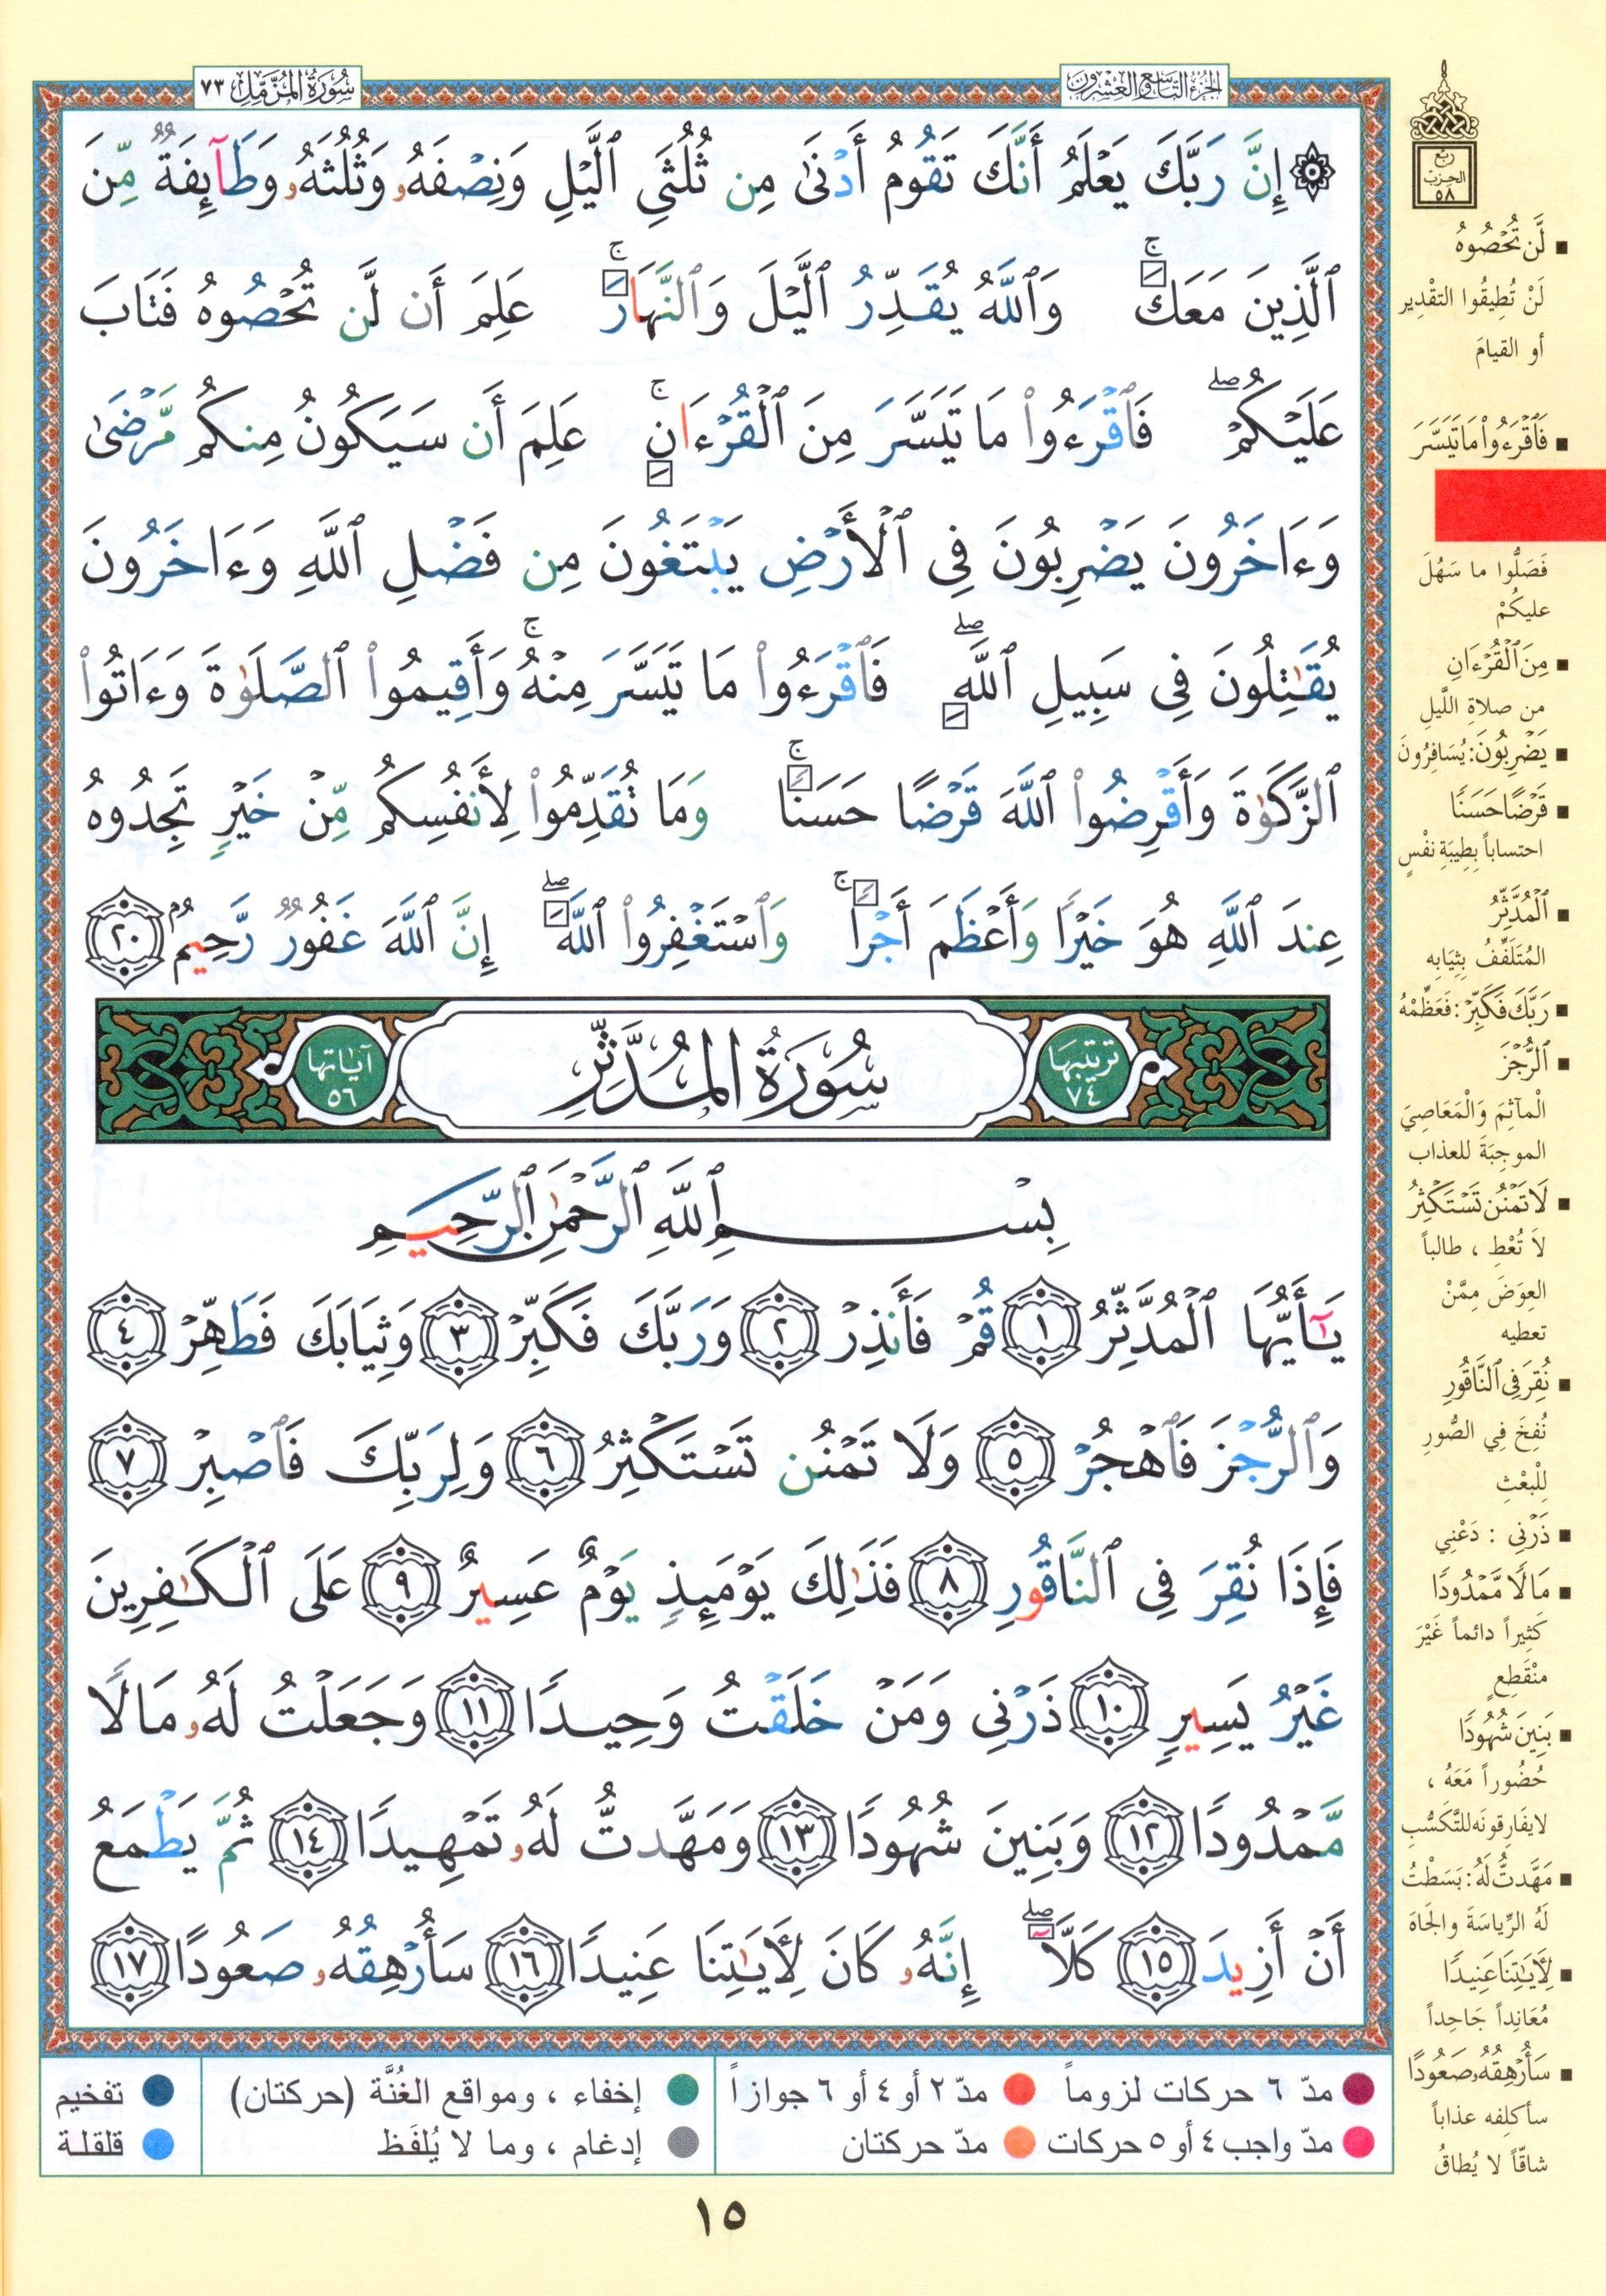 سُورَةُ المُزَّمِّلِ ٧٣
الجُزءُ التَّاسِعُ وَالعِشْرُونَ
۞ إِنَّ رَبَّكَ يَعْلَمُ أَنَّكَ تَقُومُ أَدْنَىٰ مِن ثُلُثَيِ ٱلَّيْلِ وَنِصْفَهُۥ وَثُلُثَهُۥ وَطَآئِفَةٌ مِّنَ
ٱلَّذِينَ مَعَكَ ۚ وَٱللَّهُ يُقَدِّرُ ٱلَّيْلَ وَٱلنَّهَارَ ۚ عَلِمَ أَن لَّن تُحْصُوهُ فَتَابَ
عَلَيْكُمْ ۖ فَٱقْرَءُوا۟ مَا تَيَسَّرَ مِنَ ٱلْقُرْءَانِ ۚ عَلِمَ أَن سَيَكُونُ مِنكُم مَّرْضَىٰ
وَءَاخَرُونَ يَضْرِبُونَ فِى ٱلْأَرْضِ يَبْتَغُونَ مِن فَضْلِ ٱللَّهِ وَءَاخَرُونَ
يُقَـٰتِلُونَ فِى سَبِيلِ ٱللَّهِ ۖ فَٱقْرَءُوا۟ مَا تَيَسَّرَ مِنْهُ ۚ وَأَقِيمُوا۟ ٱلصَّلَوٰةَ وَءَاتُوا۟
ٱلزَّكَوٰةَ وَأَقْرِضُوا۟ ٱللَّهَ قَرْضًا حَسَنًا ۚ وَمَا تُقَدِّمُوا۟ لِأَنفُسِكُم مِّنْ خَيْرٍ تَجِدُوهُ
عِندَ ٱللَّهِ هُوَ خَيْرًا وَأَعْظَمَ أَجْرًا ۚ وَٱسْتَغْفِرُوا۟ ٱللَّهَ ۖ إِنَّ ٱللَّهَ غَفُورٌ رَّحِيمٌ ٢٠
ترتيبها ٧٤ سُورَةُ المُدَّثِّرِ آياتها ٥٦
بِسْمِ ٱللَّهِ ٱلرَّحْمَـٰنِ ٱلرَّحِيمِ
يَـٰٓأَيُّهَا ٱلْمُدَّثِّرُ ١ قُمْ فَأَنذِرْ ٢ وَرَبَّكَ فَكَبِّرْ ٣ وَثِيَابَكَ فَطَهِّرْ ٤
وَٱلرُّجْزَ فَٱهْجُرْ ٥ وَلَا تَمْنُن تَسْتَكْثِرُ ٦ وَلِرَبِّكَ فَٱصْبِرْ ٧
فَإِذَا نُقِرَ فِى ٱلنَّاقُورِ ٨ فَذَٰلِكَ يَوْمَئِذٍ يَوْمٌ عَسِيرٌ ٩ عَلَى ٱلْكَـٰفِرِينَ
غَيْرُ يَسِيرٍ ١٠ ذَرْنِى وَمَنْ خَلَقْتُ وَحِيدًا ١١ وَجَعَلْتُ لَهُۥ مَالًا
مَّمْدُودًا ١٢ وَبَنِينَ شُهُودًا ١٣ وَمَهَّدتُّ لَهُۥ تَمْهِيدًا ١٤ ثُمَّ يَطْمَعُ
أَنْ أَزِيدَ ١٥ كَلَّآ ۖ إِنَّهُۥ كَانَ لِـَٔايَـٰتِنَا عَنِيدًا ١٦ سَأُرْهِقُهُۥ صَعُودًا ١٧
ربع
الحزب
٥٨
■ لَّن تُحْصُوهُ
لَنْ تُطِيقُوا التقْدِير
أو القيامَ
■ فَٱقْرَءُوا۟ مَا تَيَسَّرَ
فَصَلُّوا ما سَهُلَ
عليكُمْ
■ مِنَ ٱلْقُرْءَانِ
من صلاةِ اللَّيلِ
■ يَضْرِبُونَ: يُسَافِرُونَ
■ قَرْضًا حَسَنًا
احتساباً بِطِيبَةِ نفْسٍ
■ ٱلْمُدَّثِّرُ
المُتَلَفِّفُ بِثِيَابِه
■ رَبَّكَ فَكَبِّرْ: فَعَظِّمْهُ
■ ٱلرُّجْزَ
الْمآثِمَ وَالْمَعَاصِيَ
الموجِبَةَ للعذاب
■ لَا تَمْنُن تَسْتَكْثِرُ
لاَ تُعْطِ ، طالباً
العِوَضَ مِمَّنْ
تعطيه
■ نُقِرَ فِى ٱلنَّاقُورِ
نُفِخَ فِي الصُّورِ
لِلْبعْثِ
■ ذَرْنِى : دَعْنِي
■ مَالًا مَّمْدُودًا
كَثِيراً دائماً غَيْرَ
منْقَطِعٍ
■ بَنِينَ شُهُودًا
حُضُوراً مَعَهُ ،
لايفَارِقونَه للتَّكَسُّبِ
■ مَهَّدتُّ لَهُ: بَسَطْتُ
لَهُ الرِّياسَةَ والجَاهَ
■ لِـَٔايَـٰتِنَا عَنِيدًا
مُعَانِداً جَاحِداً
■ سَأُرْهِقُهُۥ صَعُودًا
سأكلِفه عذاباً
شاقّاً لا يُطاقُ
مدّ ٦ حركات لزوماً مدّ ٢ أو ٤ أو ٦ جوازاً إخفاء ، ومواقع الغُنَّة (حركتان) تفخيم
مدّ واجب ٤ أو ٥ حركات مدّ حركتان إدغام ، وما لا يُلفَظ قلقلة
١٥